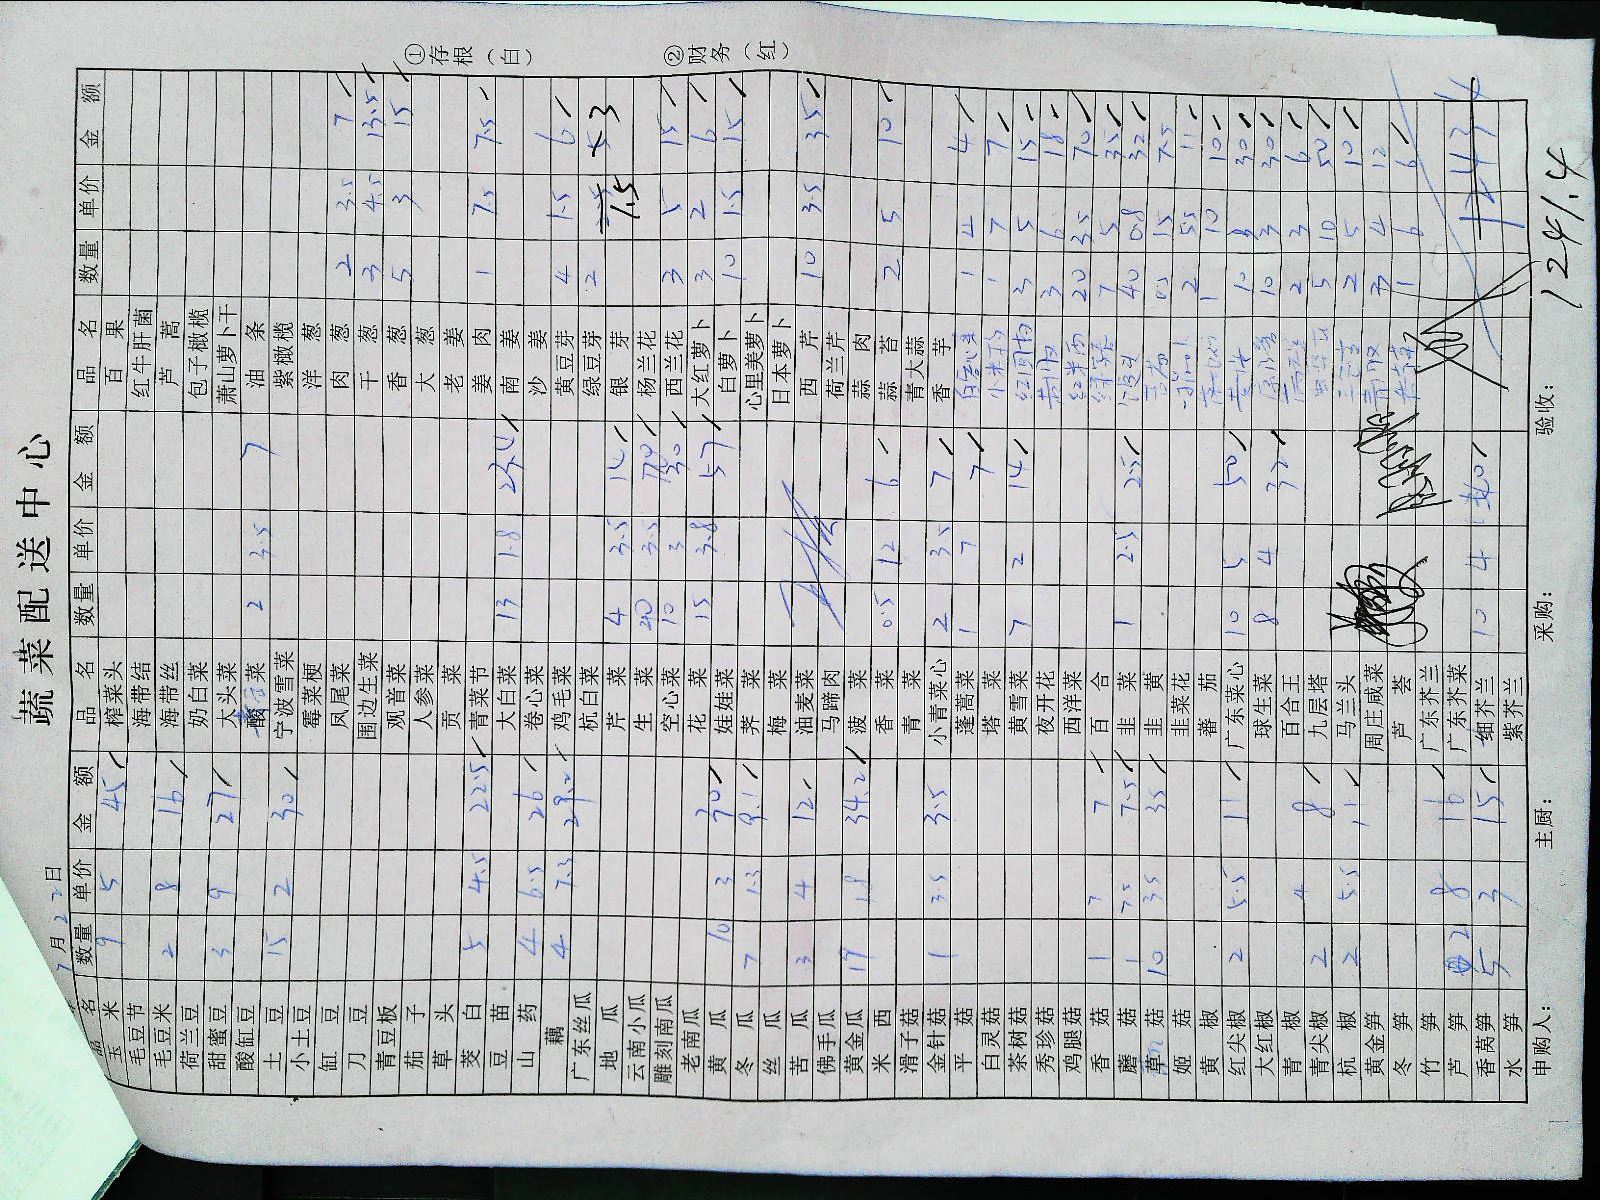 蔬菜配送中心
7月22日
①存根（白） ②财务（红）
品名 数量 单价 金额 品名 数量 单价 金额 品名 数量 单价 金额
玉米 9 5 45 榨菜头 百果
毛豆节 海带结 红牛肝菌
毛豆米 2 8 16 海带丝 芦蒿
荷兰豆 奶白菜 包子橄榄
甜蜜豆 3 9 27 大头菜 萧山萝卜干
酸缸豆 菜 2 3.5 7 油条
土豆 15 2 30 宁波雪菜 紫橄榄
小土豆 霉菜梗 洋葱
缸豆 凤尾菜 肉葱 2 3.5 7
刀豆 围边生菜 干葱 3 4.5 13.5
青豆板 观音菜 香葱 5 3 15
茄子 人参菜 大葱
草头 贡菜 老姜
茭白 5 4.5 22.5 青菜节 姜肉 1 7.5 7.5
豆苗 大白菜 13 1.8 23.4 南姜
山药 4 6.5 26 卷心菜 沙姜
藕 4 7.3 29.2 鸡毛菜 黄豆芽 4 1.5 6
广东丝瓜 杭白菜 绿豆芽 2 1.5 3
地瓜 芹菜 4 3.5 14 银芽
云南小瓜 生菜 20 3.5 70 杨兰花
雕刻南瓜 空心菜 10 3 30 西兰花 3 5 15
老南瓜 花菜 15 3.8 57 大红萝卜 3 2 6
黄瓜 10 3 30 娃娃菜 白萝卜 10 1.5 15
冬瓜 7 1.3 9.1 荠菜 心里美萝卜
丝瓜 梅菜 日本萝卜
苦瓜 3 4 12 油麦菜 西芹 10 3.5 35
佛手瓜 马蹄肉 荷兰芹
黄金瓜 19 1.8 34.2 菠菜 蒜肉
米西 香菜 0.5 12 6 蒜苔 2 5 10
滑子菇 青菜 青大蒜
金针菇 1 3.5 3.5 小青菜心 2 3.5 7 香芋
平菇 蓬蒿菜 1 7 7 1 4 4
白灵菇 塔菜 小米椒 1 7 7
茶树菇 黄雪菜 7 2 14 3 5 15
秀珍菇 夜开花 3 6 18
鸡腿菇 西洋菜 20 3.5 70
香菇 1 7 7 百合 7 5 35
蘑菇 1 7.5 7.5 韭菜 1 2.5 2.5 40 0.8 32
草菇 10 3.5 35 韭黄 0.5 15 7.5
姬菇 韭菜花 2 5.5 11
黄椒 蕃茄 1 10 10
红尖椒 2 5.5 11 广东菜心 10 5 50 10 3 30
大红椒 球生菜 8 4 32 10 3 30
青椒 百合王 2 3 6
青尖椒 2 4 8 九层塔 5 10 50
杭椒 2 5.5 11 马兰头 2 5 10
黄金笋 周庄咸菜 3 4 12
冬笋 芦荟 1 6 6
竹笋 广东芥兰
芦笋 2 8 16 广东芥菜
香莴笋 5 3 15 细芥兰 10 4 40
水笋 紫芥兰
1243.4
申购人： 主厨： 采购： 验收： 1241.4